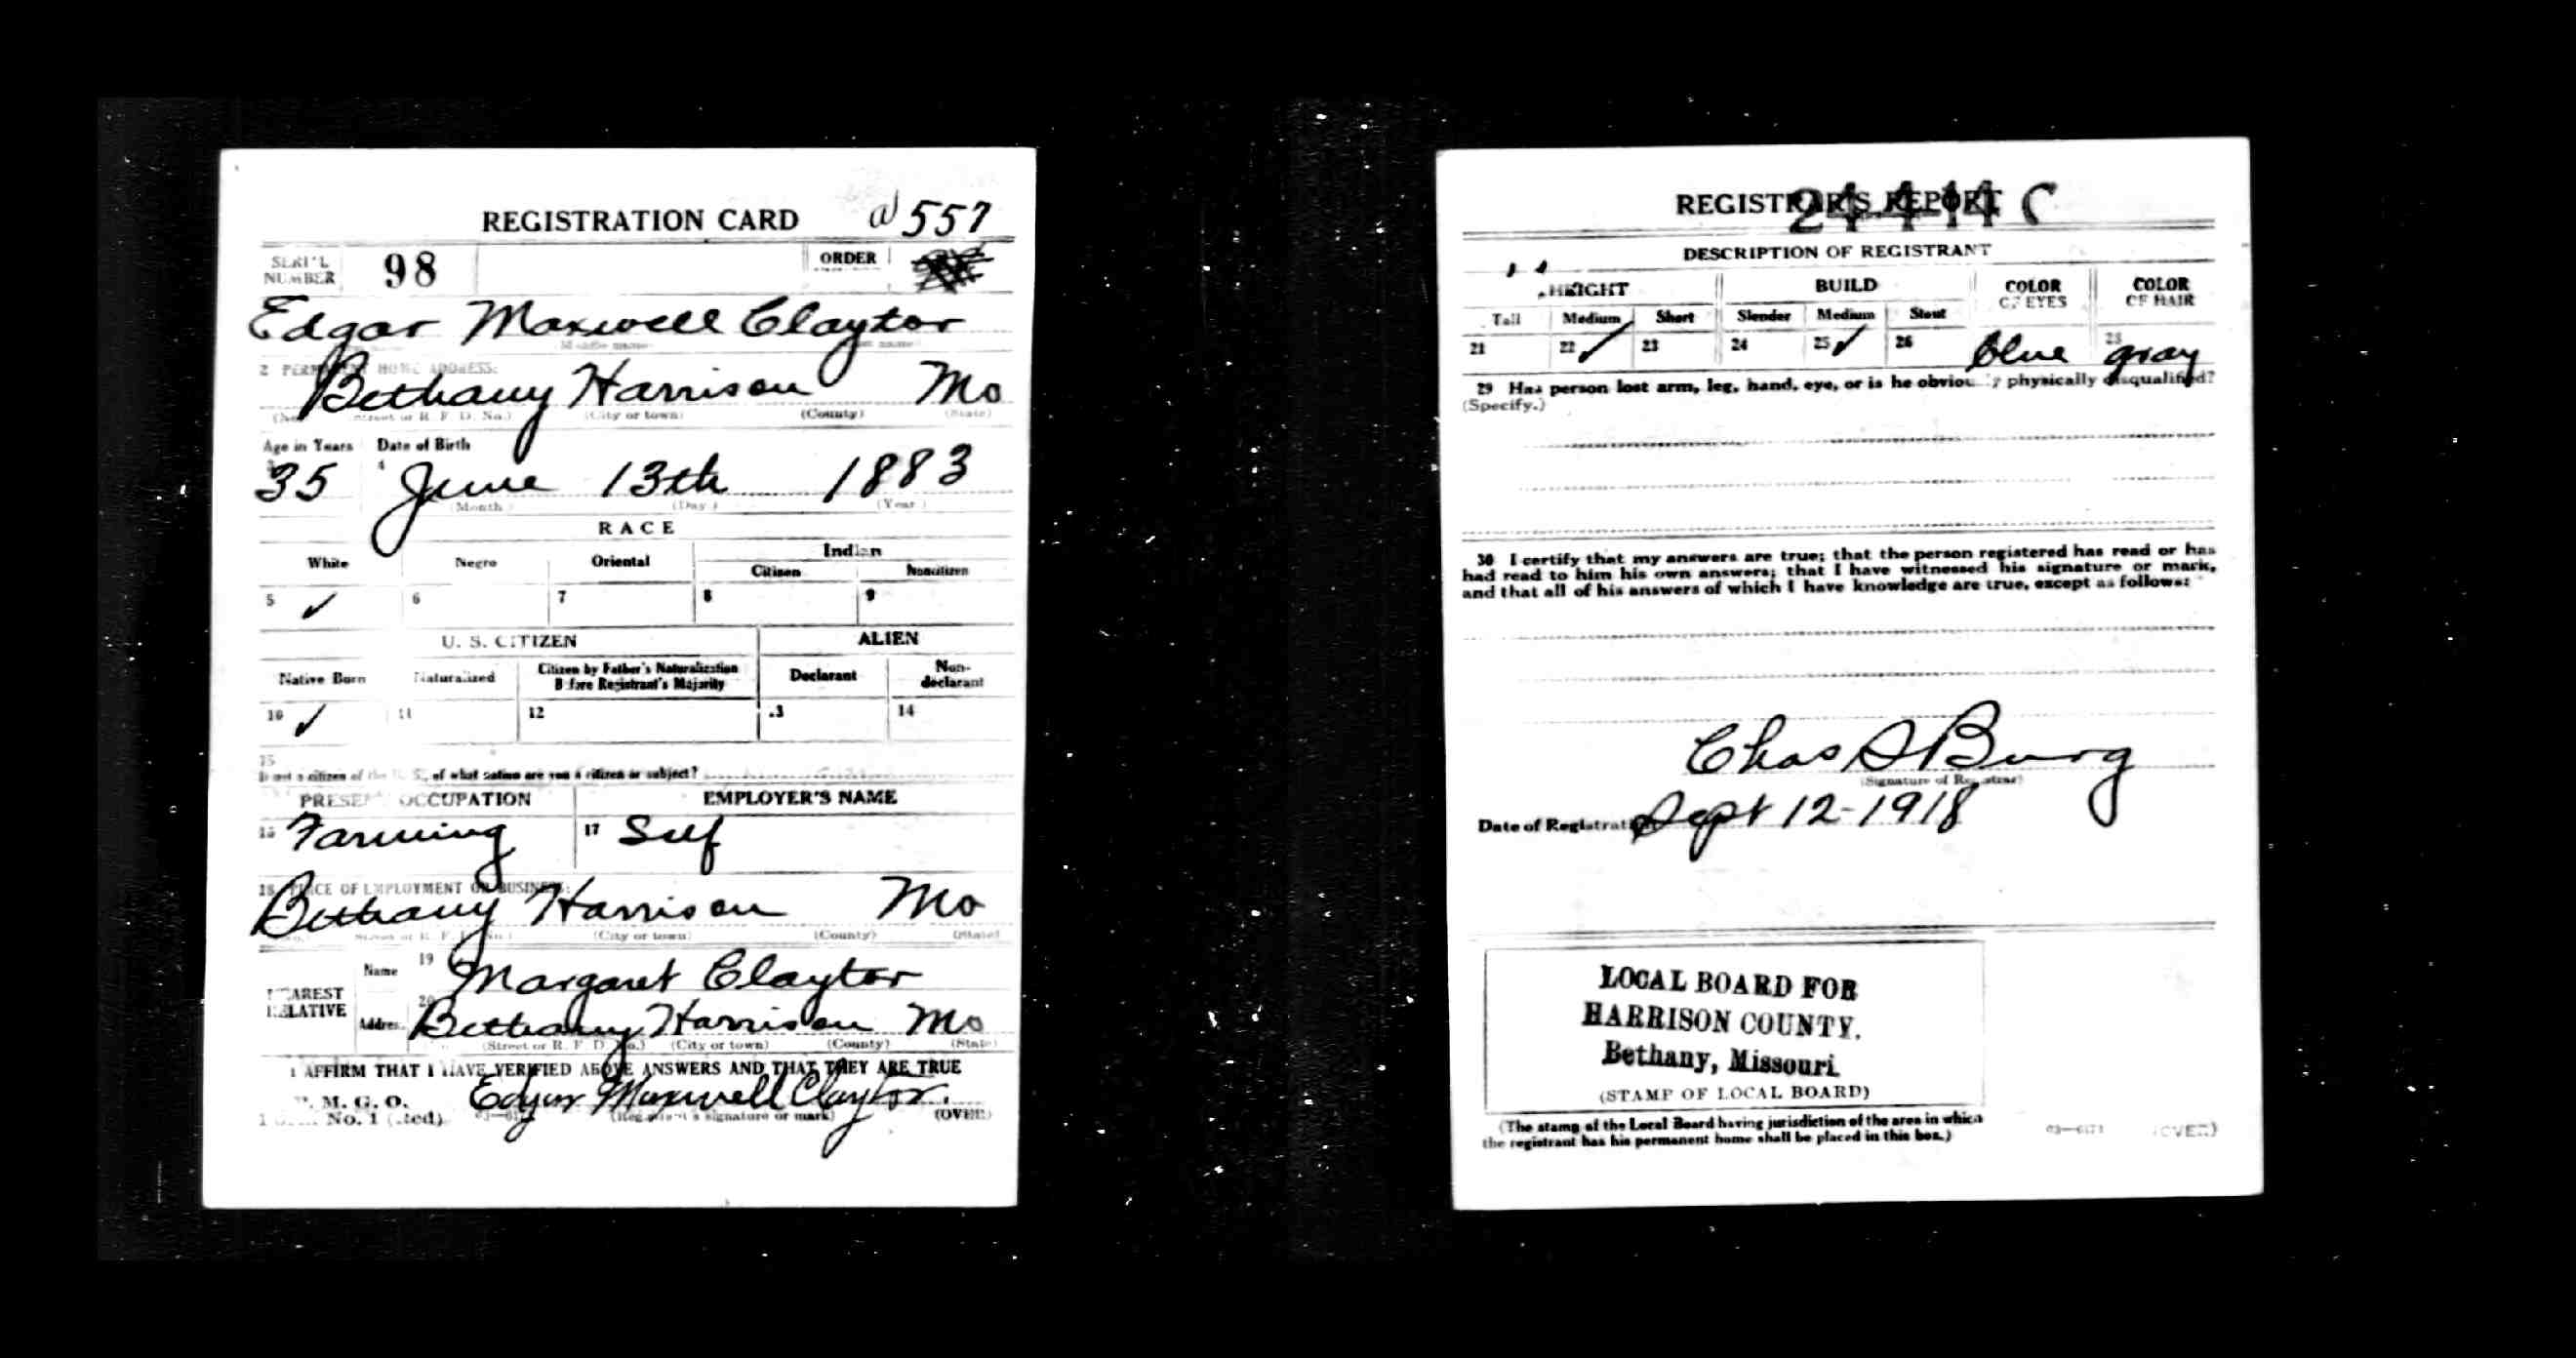 REGISTRATION CARD a 557
SERIAL NUMBER 98 ORDER
Edgar Maxwell Claytor
(Middle name) name)
2 PERMANENT HOME ADDRESS:
Bethany Harrison Mo
(No.) (Street or R. F. D. No.) (City or town) (County) (State)
Age in Years Date of Birth
3 35 4 June 13th 1883
(Month) (Day) (Year)
RACE
White Negro Oriental Indian
Citizen Noncitizen
5 ✓ 6 7 8 9
U. S. CITIZEN ALIEN
Native Born Naturalized Citizen by Father's Naturalization Before Registrant's Majority Declarant Non-declarant
10 ✓ 11 12 13 14
15
If not a citizen of the U. S., of what nation are you a citizen or subject?
PRESENT OCCUPATION EMPLOYER'S NAME
16 Farming 17 Self
18 PLACE OF EMPLOYMENT OR BUSINESS:
Bethany Harrison Mo
(No.) (Street or R. F. D. No.) (City or town) (County) (State)
NEAREST RELATIVE Name 19 Margaret Claytor
Address 20 Bethany Harrison Mo
(Street or R. F. D. No.) (City or town) (County) (State)
I AFFIRM THAT I HAVE VERIFIED ABOVE ANSWERS AND THAT THEY ARE TRUE
P. M. G. O.
Form No. 1 (Red) Edgar Maxwell Claytor.
(Registrant's signature or mark) (OVER)
REGISTRAR'S REPORT
24-4-14 C
DESCRIPTION OF REGISTRANT
HEIGHT BUILD COLOR OF EYES COLOR OF HAIR
Tall Medium Short Slender Medium Stout
21 22 ✓ 23 24 25 ✓ 26 blue 28 gray
29 Has person lost arm, leg, hand, eye, or is he obviously physically disqualified?
(Specify.)
30 I certify that my answers are true; that the person registered has read or has
had read to him his own answers; that I have witnessed his signature or mark,
and that all of his answers of which I have knowledge are true, except as follows:
Chas S Burg
(Signature of Registrar)
Date of Registration Sept 12-1918
LOCAL BOARD FOR
HARRISON COUNTY.
Bethany, Missouri
(STAMP OF LOCAL BOARD)
(The stamp of the Local Board having jurisdiction of the area in which
the registrant has his permanent home shall be placed in this box.)
03—6171 (OVER)